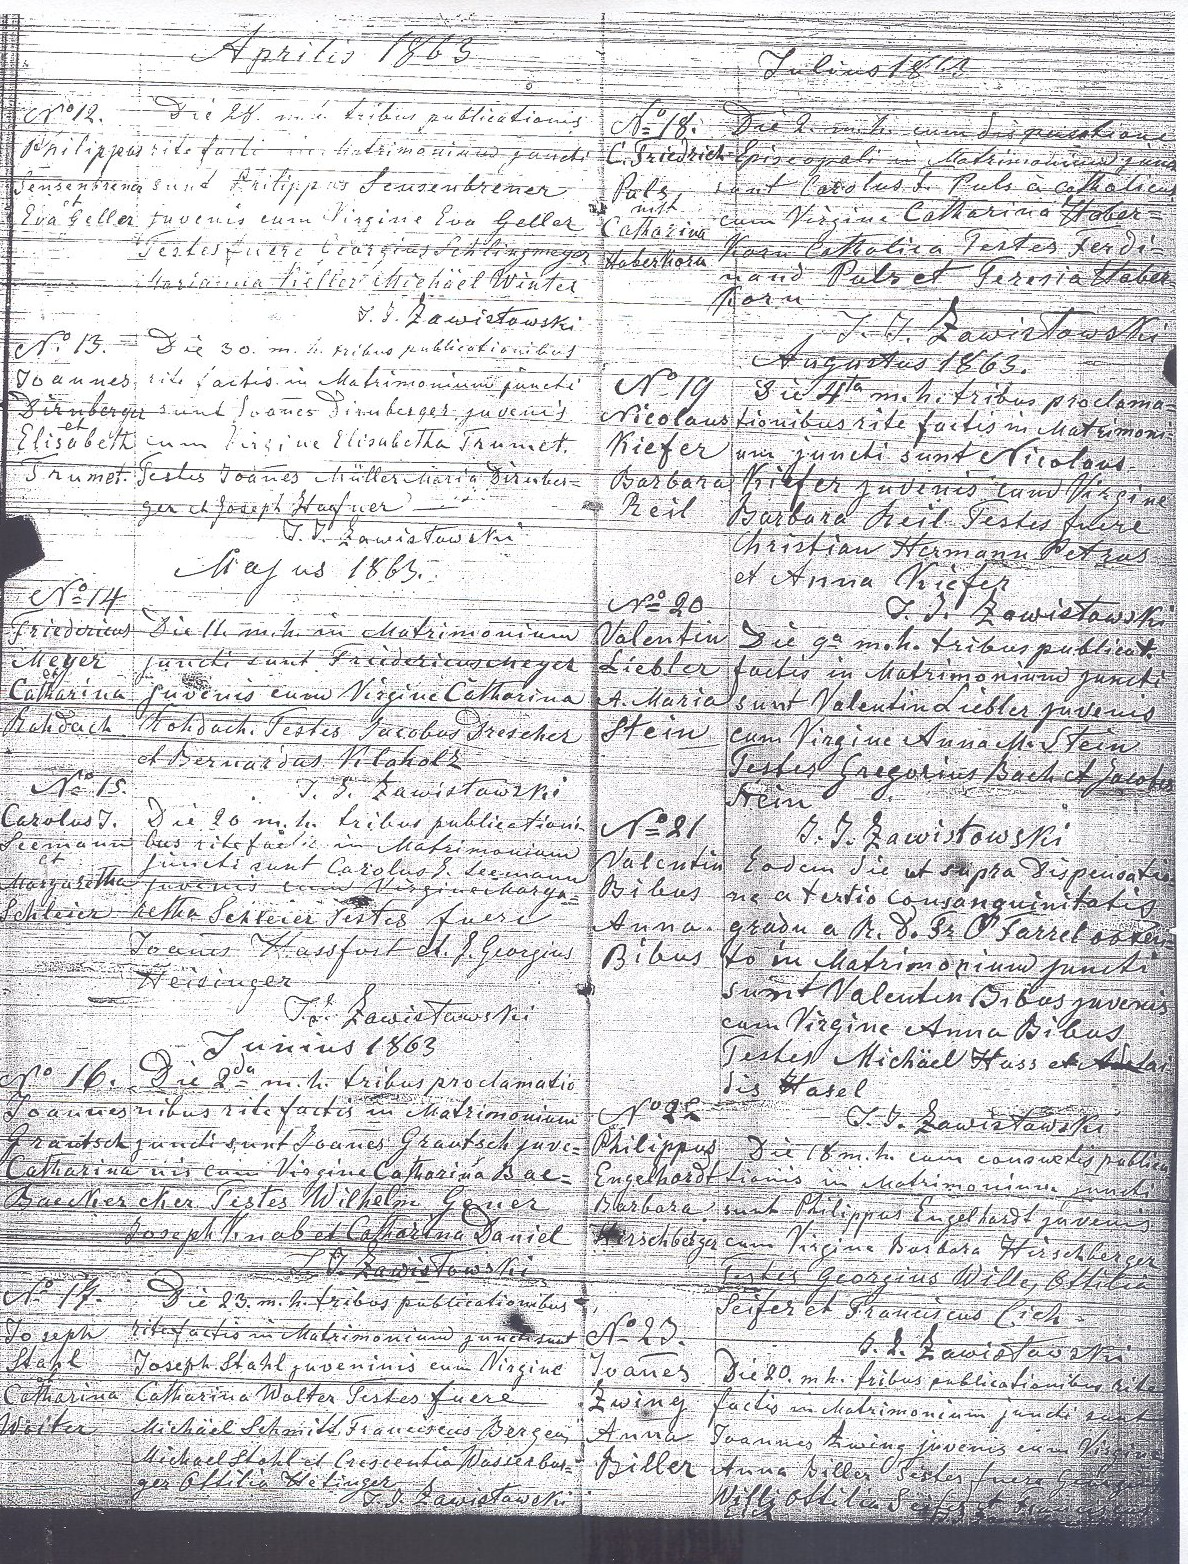 Aprilis 1863
No 12.
Philippus
Sensenbrener
et
Eva Geller
Die 28. m. h. tribus publicationis
rite facti in Matrimonium juncti
sunt Philippus Sensenbrener
juvenis cum Virgine Eva Geller
Testes fuere Georgius Schlingmeyer
Marianna Keller Michäel Winter
J. J. Zawistowski
No 13.
Joannes
Dirnberger
et
Elisabeth
Trumet.
Die 30. m. h. tribus publicationibus
rite factis in Matrimonium juncti
sunt Joanes Dirnberger juvenis
cum Virgine Elisabetha Trumet.
Testes Joanes Müller Maria Dirnber-
ger et Joseph Hafner
J. J. Zawistowski
Majus 1863.
No 14
Friedericus
Meyer
et
Catharina
Rohdach
Die 11. m. h. in Matrimonium
juncti sunt Friedericus Meyer
juvenis cum Virgine Catharina
Rohdach. Testes Jacobus Drescher
et Bernardus
J. J. Zawistowski
No 15.
Carolus J.
Seemann
et
Margaretha
Schleier
Die 20 m. h. tribus publicationi-
bus rite factis in Matrimonium
juncti sunt Carolus J. Seemann
juvenis cum Virgine Marga-
retha Schleier Testes fuere
Joanes Hassfost et J. Georgius
Heisinger
J. J. Zawistowski
Junius 1863
No 16.
Joannes
Grautsch
Catharina
Baecker
Die 2da m. h. tribus proclamatio
nibus rite factis in Matrimonium
juncti sunt Joanes Grautsch juve-
nis cum Virgine Catharina Bae-
cher Testes Wilhelm
Joseph Knab et Catharina Daniel
J. J. Zawistowski
No 17.
Joseph
Stahl
et
Catharina
Wolter
Die 23. m. h. tribus publicationibus
rite factis in Matrimonium juncti sunt
Joseph Stahl juveninis cum Virgine
Catharina Wolter Testes fuere
Michäel Schmitt, Franciscus Bergen,
Michael Stahl et Crescentia Wasserbur-
ger Ottilia Hetinger
J. J. Zawistowski
Julius 1863
No 18.
C. Friedrich
Puls
mit
Catharina
Haberkorn
Die 2. m. h. cum dispensatione
Episcopali in Matrimonium junc
sunt Carolus F. Puls à catholicus
cum Virgine Catharina Haber-
korn Catholica Testes Ferdi-
nand Puls et Teresia Haber-
korn
J. J. Zawistowski
Augustus 1863.
No 19
Nicolaus
Kiefer
Barbara
Reil
Die 4ta m. h. tribus proclama-
tionibus rite factis in Matrimoni-
um juncti sunt Nicolaus
Kiefer juvenis cum Virgine
Barbara Reil Testes fuere
Christian Hermann Petras
et Anna Kiefer
J. J. Zawistowski
No 20
Valentin
Liebler
A. Maria
Stein
Die 9a m. h. tribus publicat.
factis in Matrimonium juncti
sunt Valentin Liebler juvenis
cum Virgine Anna M. Stein
Testes Gregorius Bach et Jacobus
Stein
J. J. Zawistowski
No 21
Valentin
Bibus
Anna
Bibus
Eodem die ut supra Dispensatio-
ne a tertio consanguinitatis
gradu a R. D. Fr O'Farrel obten-
to in Matrimonium juncti
sunt Valentin Bibus juvenis
cum Virgine Anna Bibus
Testes Michäel Hass et Adelai
dis Hasel
J. J. Zawistowski
No 22
Philippus
Engelhardt
Barbara
Hirschberger
Die 18 m. h. cum consuetis publica
tionis in Matrimonium juncti
sunt Philippus Engelhardt juvenis
cum Virgine Barbara Hirschberger
Testes Georgius Wille, Ottilia
Seifer et Franciscus Eich
J. J. Zawistowski
No 23.
Joanes
Zwing
Anna
Biller
Die 20. m. h. tribus publicationibus rite
factis in Matrimonium juncti sunt
Joannes Zwing juvenis cum Virgine
Anna Biller Testes fuere Georgius
Willi Ottilia Seifer et Franciscus
Eich